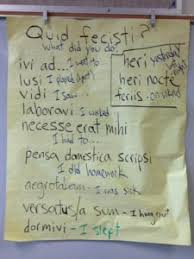 Quid fecisti?
what did you do?
ivi ad... I went to
lusi I played (sport)
vidi I saw...
laboravi I worked
necesse erat mihi
I had to...
pensa domestica scripsi
I did homework
aegrotabam - I was sick
versatus/a sum - I hung out
dormivi - I slept
heri yesterday
heri nocte last night
feriis - on weekend